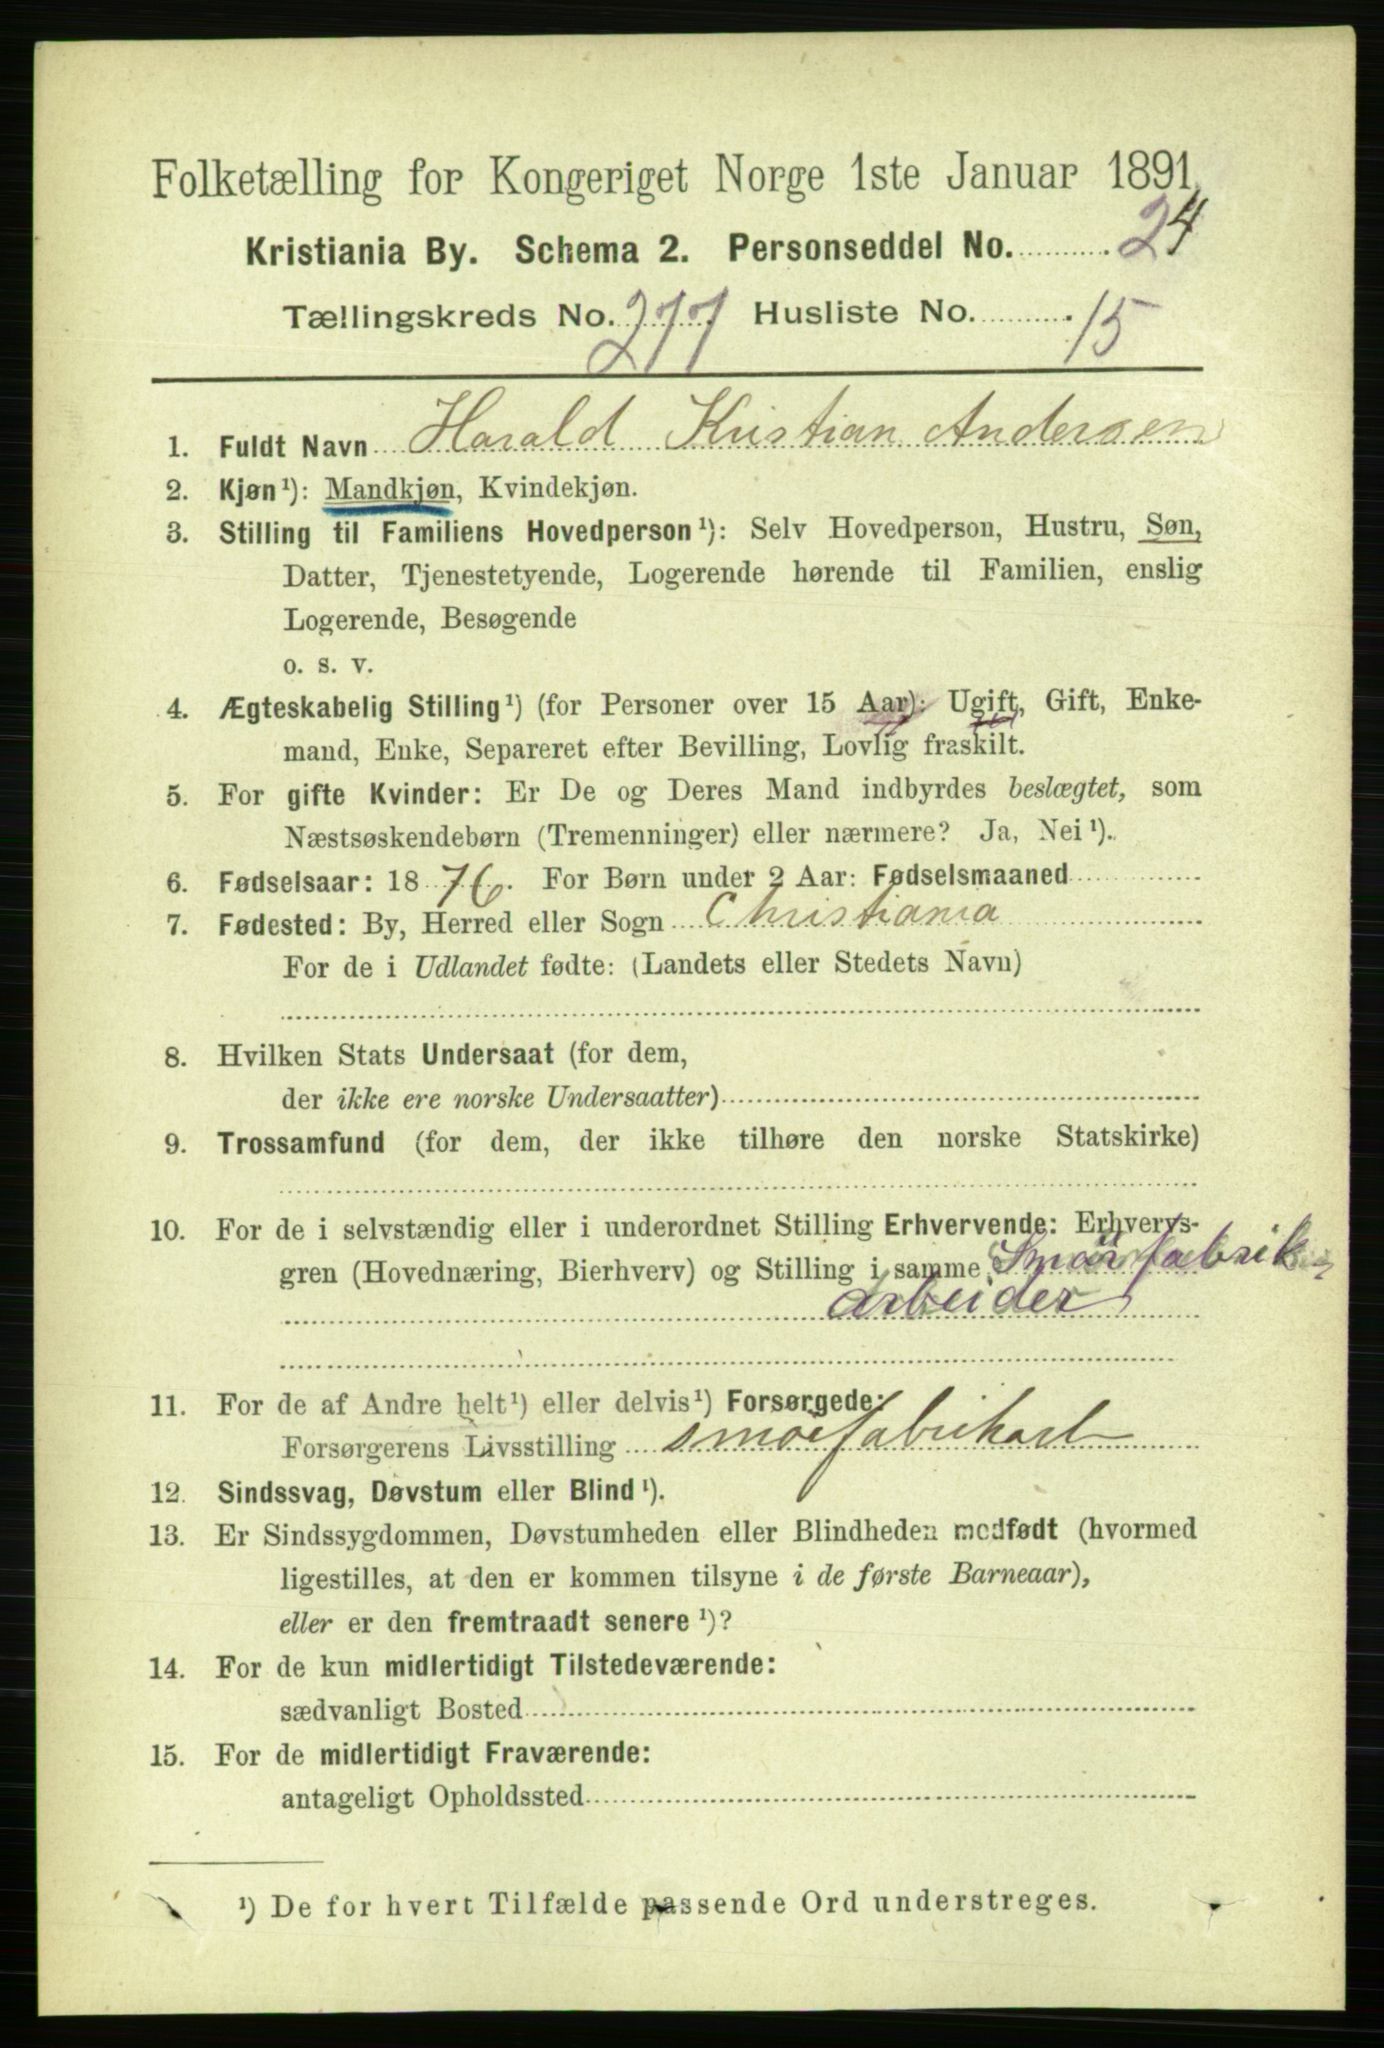 Folketælling for Kongeriget Norge 1ste Januar 1891.
Kristiania By. Schema 2. Personseddel No. 24
Tællingskreds No. 277 Husliste No. 15
1. Fuldt Navn Harald Kristian Andersen
2. Kjøn¹): Mandkjøn, Kvindekjøn.
3. Stilling til Familiens Hovedperson¹): Selv Hovedperson, Hustru, Søn,
Datter, Tjenestetyende, Logerende hørende til Familien, enslig
Logerende, Besøgende
o. s. v.
4. Ægteskabelig Stilling¹) (for Personer over 15 Aar): Ugift, Gift, Enke-
mand, Enke, Separeret efter Bevilling, Lovlig fraskilt.
5. For gifte Kvinder: Er De og Deres Mand indbyrdes beslægtet, som
Næstsøskendebørn (Tremenninger) eller nærmere? Ja, Nei¹).
6. Fødselsaar: 1876. For Børn under 2 Aar: Fødselsmaaned
7. Fødested: By, Herred eller Sogn Christiania
For de i Udlandet fødte: (Landets eller Stedets Navn)
8. Hvilken Stats Undersaat (for dem,
der ikke ere norske Undersaatter)
9. Trossamfund (for dem, der ikke tilhøre den norske Statskirke)
10. For de i selvstændig eller i underordnet Stilling Erhvervende: Erhvervs-
gren (Hovednæring, Bierhverv) og Stilling i samme Smørfabrik
arbeider
11. For de af Andre helt¹) eller delvis¹) Forsørgede:
Forsørgerens Livsstilling smørfabrikant
12. Sindssvag, Døvstum eller Blind¹).
13. Er Sindssygdommen, Døvstumheden eller Blindheden medfødt (hvormed
ligestilles, at den er kommen tilsyne i de første Barneaar),
eller er den fremtraadt senere¹)?
14. For de kun midlertidigt Tilstedeværende:
sædvanligt Bosted
15. For de midlertidigt Fraværende:
antageligt Opholdssted
¹) De for hvert Tilfælde passende Ord understreges.